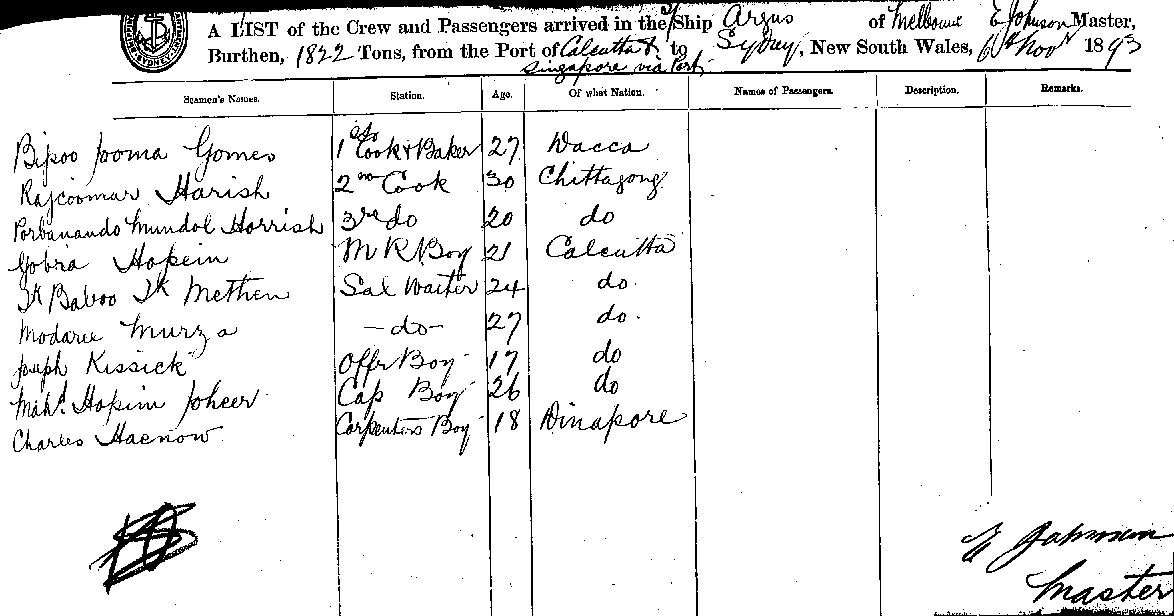 A LIST of the Crew and Passengers arrived in the S/ Ship Argus of Melbourne E Johnson Master,
Burthen, 1822 Tons, from the Port of Calcutta & to Sydney, New South Wales, 6th Novr 1893
Singapore via Port
Seamen's Names. Station. Age. Of what Nation. Names of Passengers. Description. Remarks.
Bijoo Jooma Gomes 1st Cook & Baker 27 Dacca
Rajcoomar Harish 2nd Cook 30 Chittagong
Porbanando Mundol Horrish 3rd do 20 do
Gobra Hopein M R Boy 21 Calcutta
Sk Baboo Sk Methen Sal Waiter 24 do.
Modaree Murza - do - 27 do.
Joseph Kissick Offr Boy 17 do
Mahd. Hopim Joheer Cap Boy 26 do
Charles Haenow Carpenters Boy 18 Dinapore
E Johnson
Master